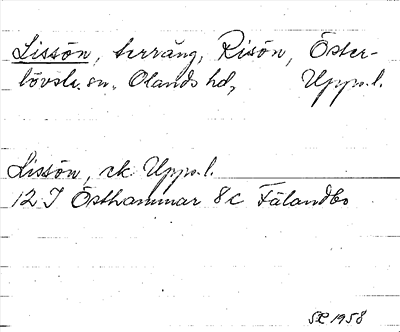 Lissön, terräng, Risön, Öster-
lövsta sn, Olands hd, Upps.l.
Lissön, rk Upps.l.
12 I Östhammar 8c Fälandbo
SL 1958